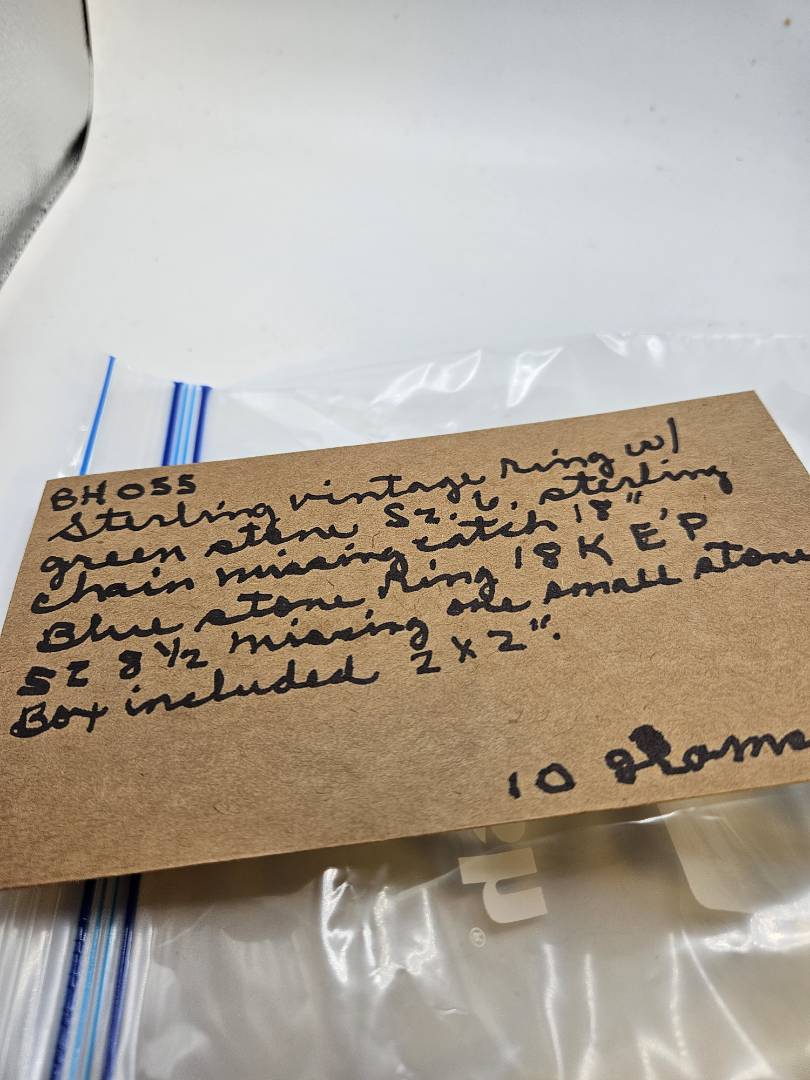 BH 055
Sterling vintage ring w/
green stone Sz. 6. sterling
chain missing catch 18"
Blue stone Ring 18K E'P
SZ 8 1/2 missing one small stone
Box included 2 x 2".
10 grams